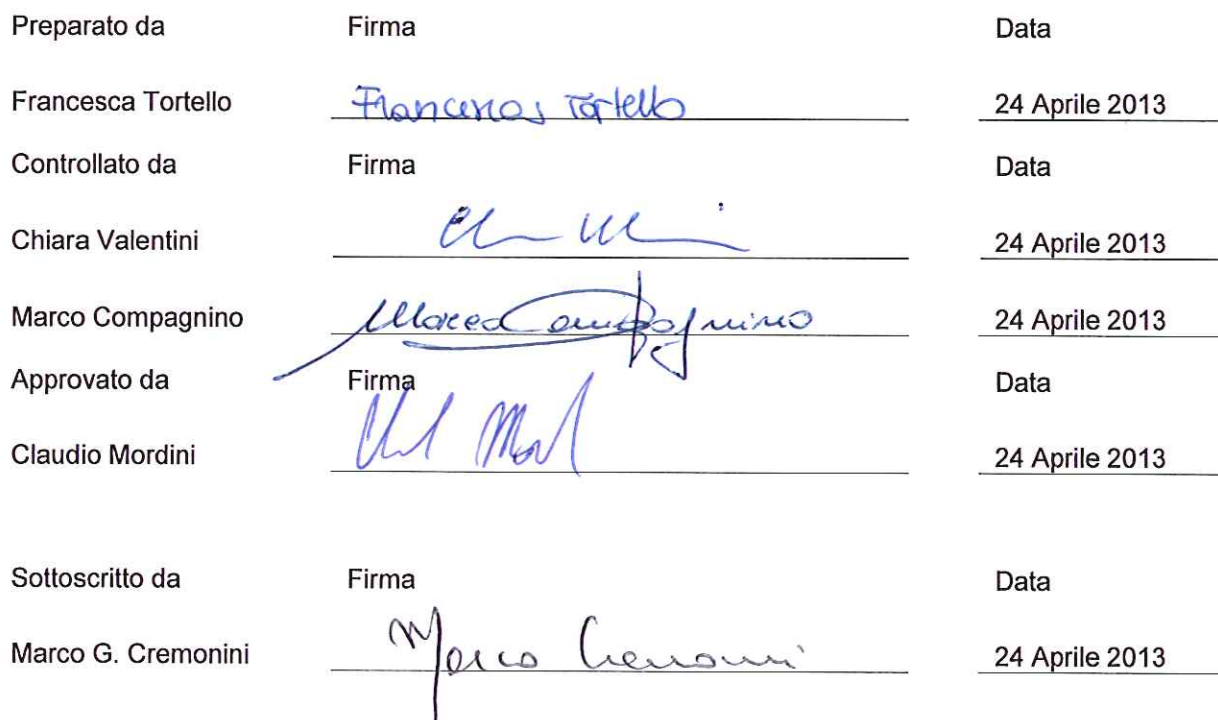 Preparato da Firma Data
Francesca Tortello Francesca Tortello 24 Aprile 2013
Controllato da Firma Data
Chiara Valentini 24 Aprile 2013
Marco Compagnino Marco Compagnino 24 Aprile 2013
Approvato da Firma Data
Claudio Mordini 24 Aprile 2013
Sottoscritto da Firma Data
Marco G. Cremonini Marco Cremonini 24 Aprile 2013